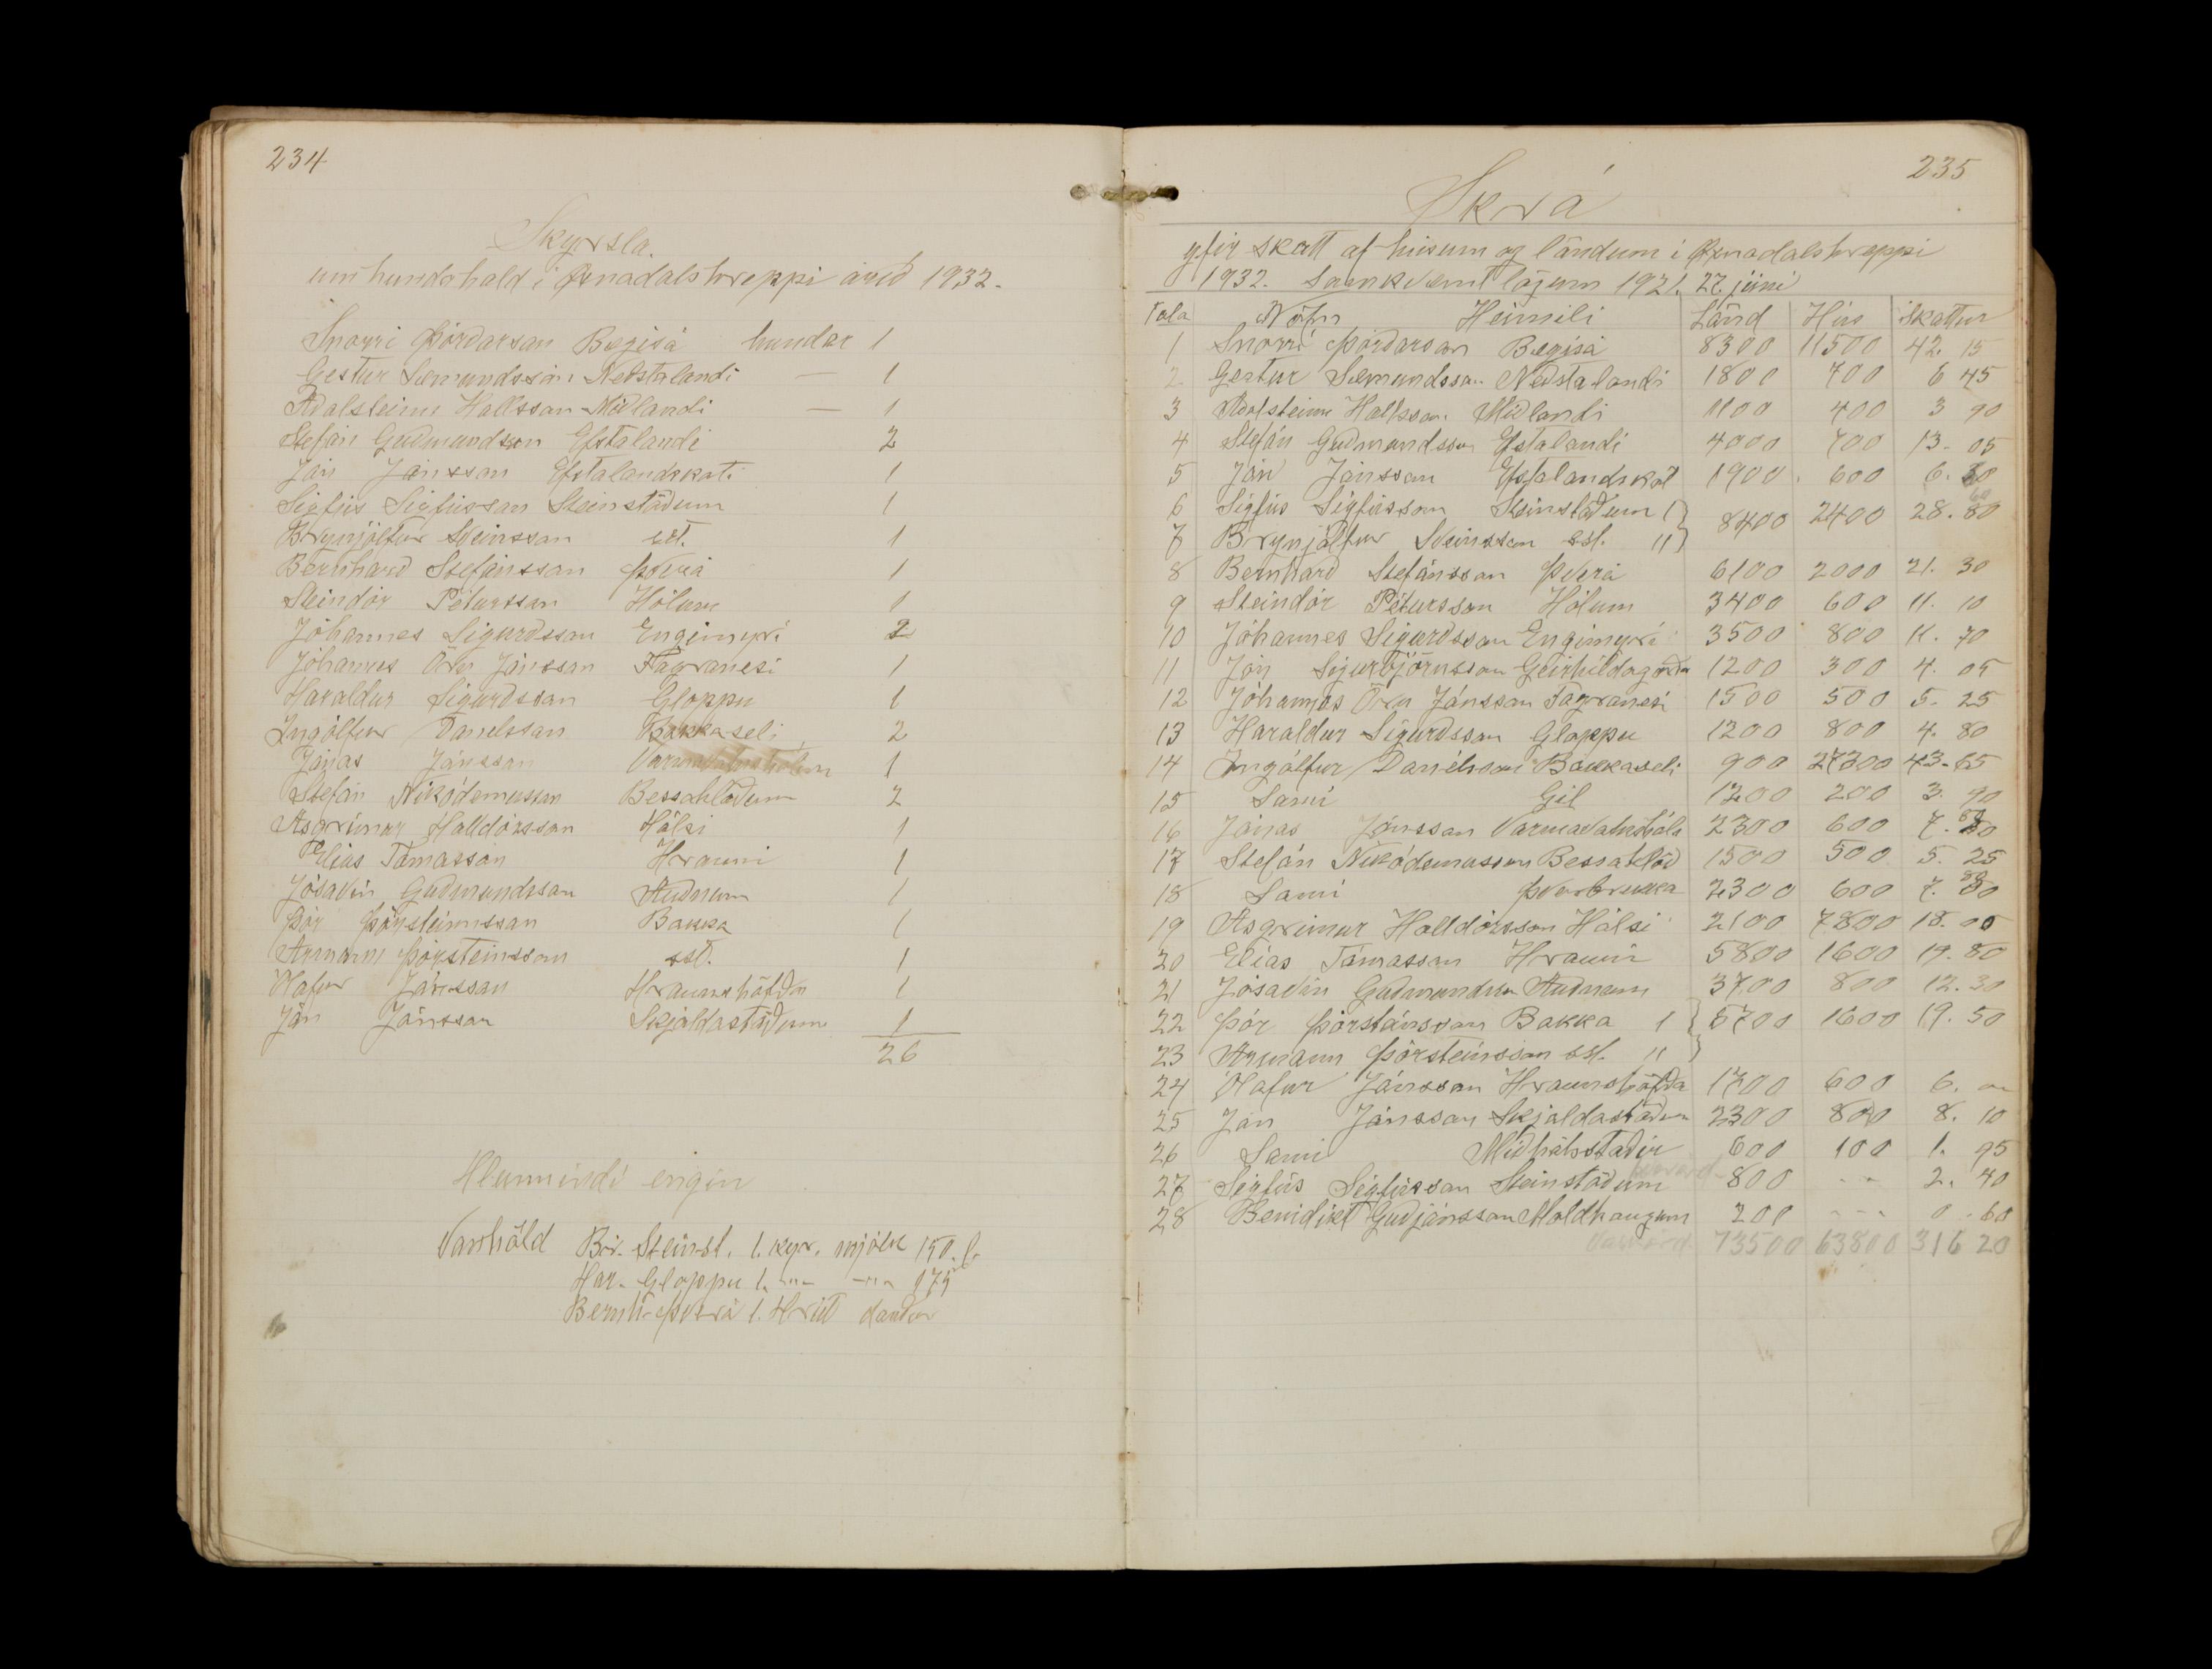 234
Skyrsla.
um hundahald í Öxnadalshreppi árið 1932.
Snorri Þórðarson Bægisá hundar 1
Gestur Sæmundsson Neðstalandi — 1
Aðalsteinn Hallsson Miðlandi — 1
Stefán Guðmundsson Efstalandi 2
Jón Jónsson Efstalandskoti 1
Sigfús Sigfússon Steinstöðum 1
Brynjólfur Sveinsson sst. 1
Bernharð Stefánsson Þverá 1
Steindór Pétursson Hólum 1
Jóhannes Sigurðsson Engimýri 2
Jóhannes Örn Jónsson Fagranesi 1
Haraldur Sigurðsson Gloppu 1
Ingólfur Daníelsson Bakkaseli 2
Jónas Jónsson Varmavatnshólum 1
Stefán Nikódemusson Bessahlöðum 2
Ásgrímur Halldórsson Hálsi 1
Elías Tómasson Hrauni 1
Jósavin Guðmundsson Auðnum 1
Þór Þórsteinsson Bakka 1
Ármann Þórsteinsson sst. 1
Ólafur Jónsson Hraunshöfða 1
Jón Jónsson Skjaldastöðum 1
26
Hlunnindi engin
Vanhöld Br. Steinst. 1. kyr. mjólk 150. l.
Har. Gloppu 1. -"- -"- 175
Bernh. Þverá 1. Hrút dauður
235
Skrá
yfir skatt af húsum og löndum í Öxnadalshreppi
1932. Samkvæmt lögum 1921. 27. júní
Tala Nöfn Heimili Länd Hús Skattur
1 Snorri Þórðarson Bægisá 8300 11500 42. 15
2 Gestur Sæmundsson Neðstalandi 1800 700 6 45
3 Aðalsteinn Hallsson Miðlandi 1100 400 3 90
4 Stefán Guðmundsson Efstalandi 4000 700 13. 05
5 Jón Jónsson Efstalandskot 1900 600 6. 60
6 Sigfús Sigfússon Steinstöðum 1} 8400 2400 28. 80
7 Brynjólfur Sveinsson sst. "}
8 Bernharð Stefánsson Þverá 6100 2000 21. 30
9 Steindór Pétursson Hólum 3400 600 11. 10
10 Jóhannes Sigurðsson Engimýri 3500 800 11. 70
11 Jón Sigurbjörnsson Geirhildagörðu 1200 300 4. 05
12 Jóhannes Örn Jónsson Fagranesi 1500 500 5. 25
13 Haraldur Sigurðsson Gloppu 1200 800 4. 80
14 Ingólfur Daníelsson Bakkaseli 900 27300 43. 65
15 Sami Gil 1200 200 3. 90
16 Jónas Jónsson Varmavatnshóla 2300 600 7. 80
17 Stefán Nikódemusson Bessahlöð 1500 500 5. 25
18 Sami Þverbrekka 2300 600 7. 80
19 Ásgrímur Halldórsson Hálsi 2100 7800 18. 00
20 Elías Tómasson Hrauni 5800 1600 19. 80
21 Jósavin Guðmundsson Auðnum 3700 800 12. 30
22 Þór Þórsteinsson Bakka 1} 5700 1600 19. 50
23 Ármann Þórsteinsson sst. "}
24 Ólafur Jónsson Hraunshöfða 1700 600 6. "
25 Jón Jónsson Skjaldastöðum 2300 800 8. 10
26 Sami Miðhálsstaðir 600 100 1. 95
27 Sigfús Sigfússon Steinstöðum 800 - - 2. 40
28 Benidikt Guðjónsson Moldhaugum 200 - - - 0. 60
73500 63800 316 20